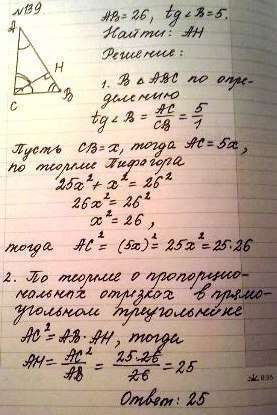 №139
AB=26, tg∠B=5.
Найти: AH
Решение:
A
H
C
B
1. В △ABC по опре-
делению
tg∠B = AC/CB = 5/1
Пусть CB=x, тогда AC=5x,
по теореме Пифагора
25x²+x²=26²
26x²=26²
x²=26,
тогда AC²=(5x)²=25x²=25·26
2. По теореме о пропорцио-
нальных отрезках в прямо-
угольном треугольнике
AC²=AB·AH, тогда
AH=AC²/AB=25·26/26=25
Ответ: 25